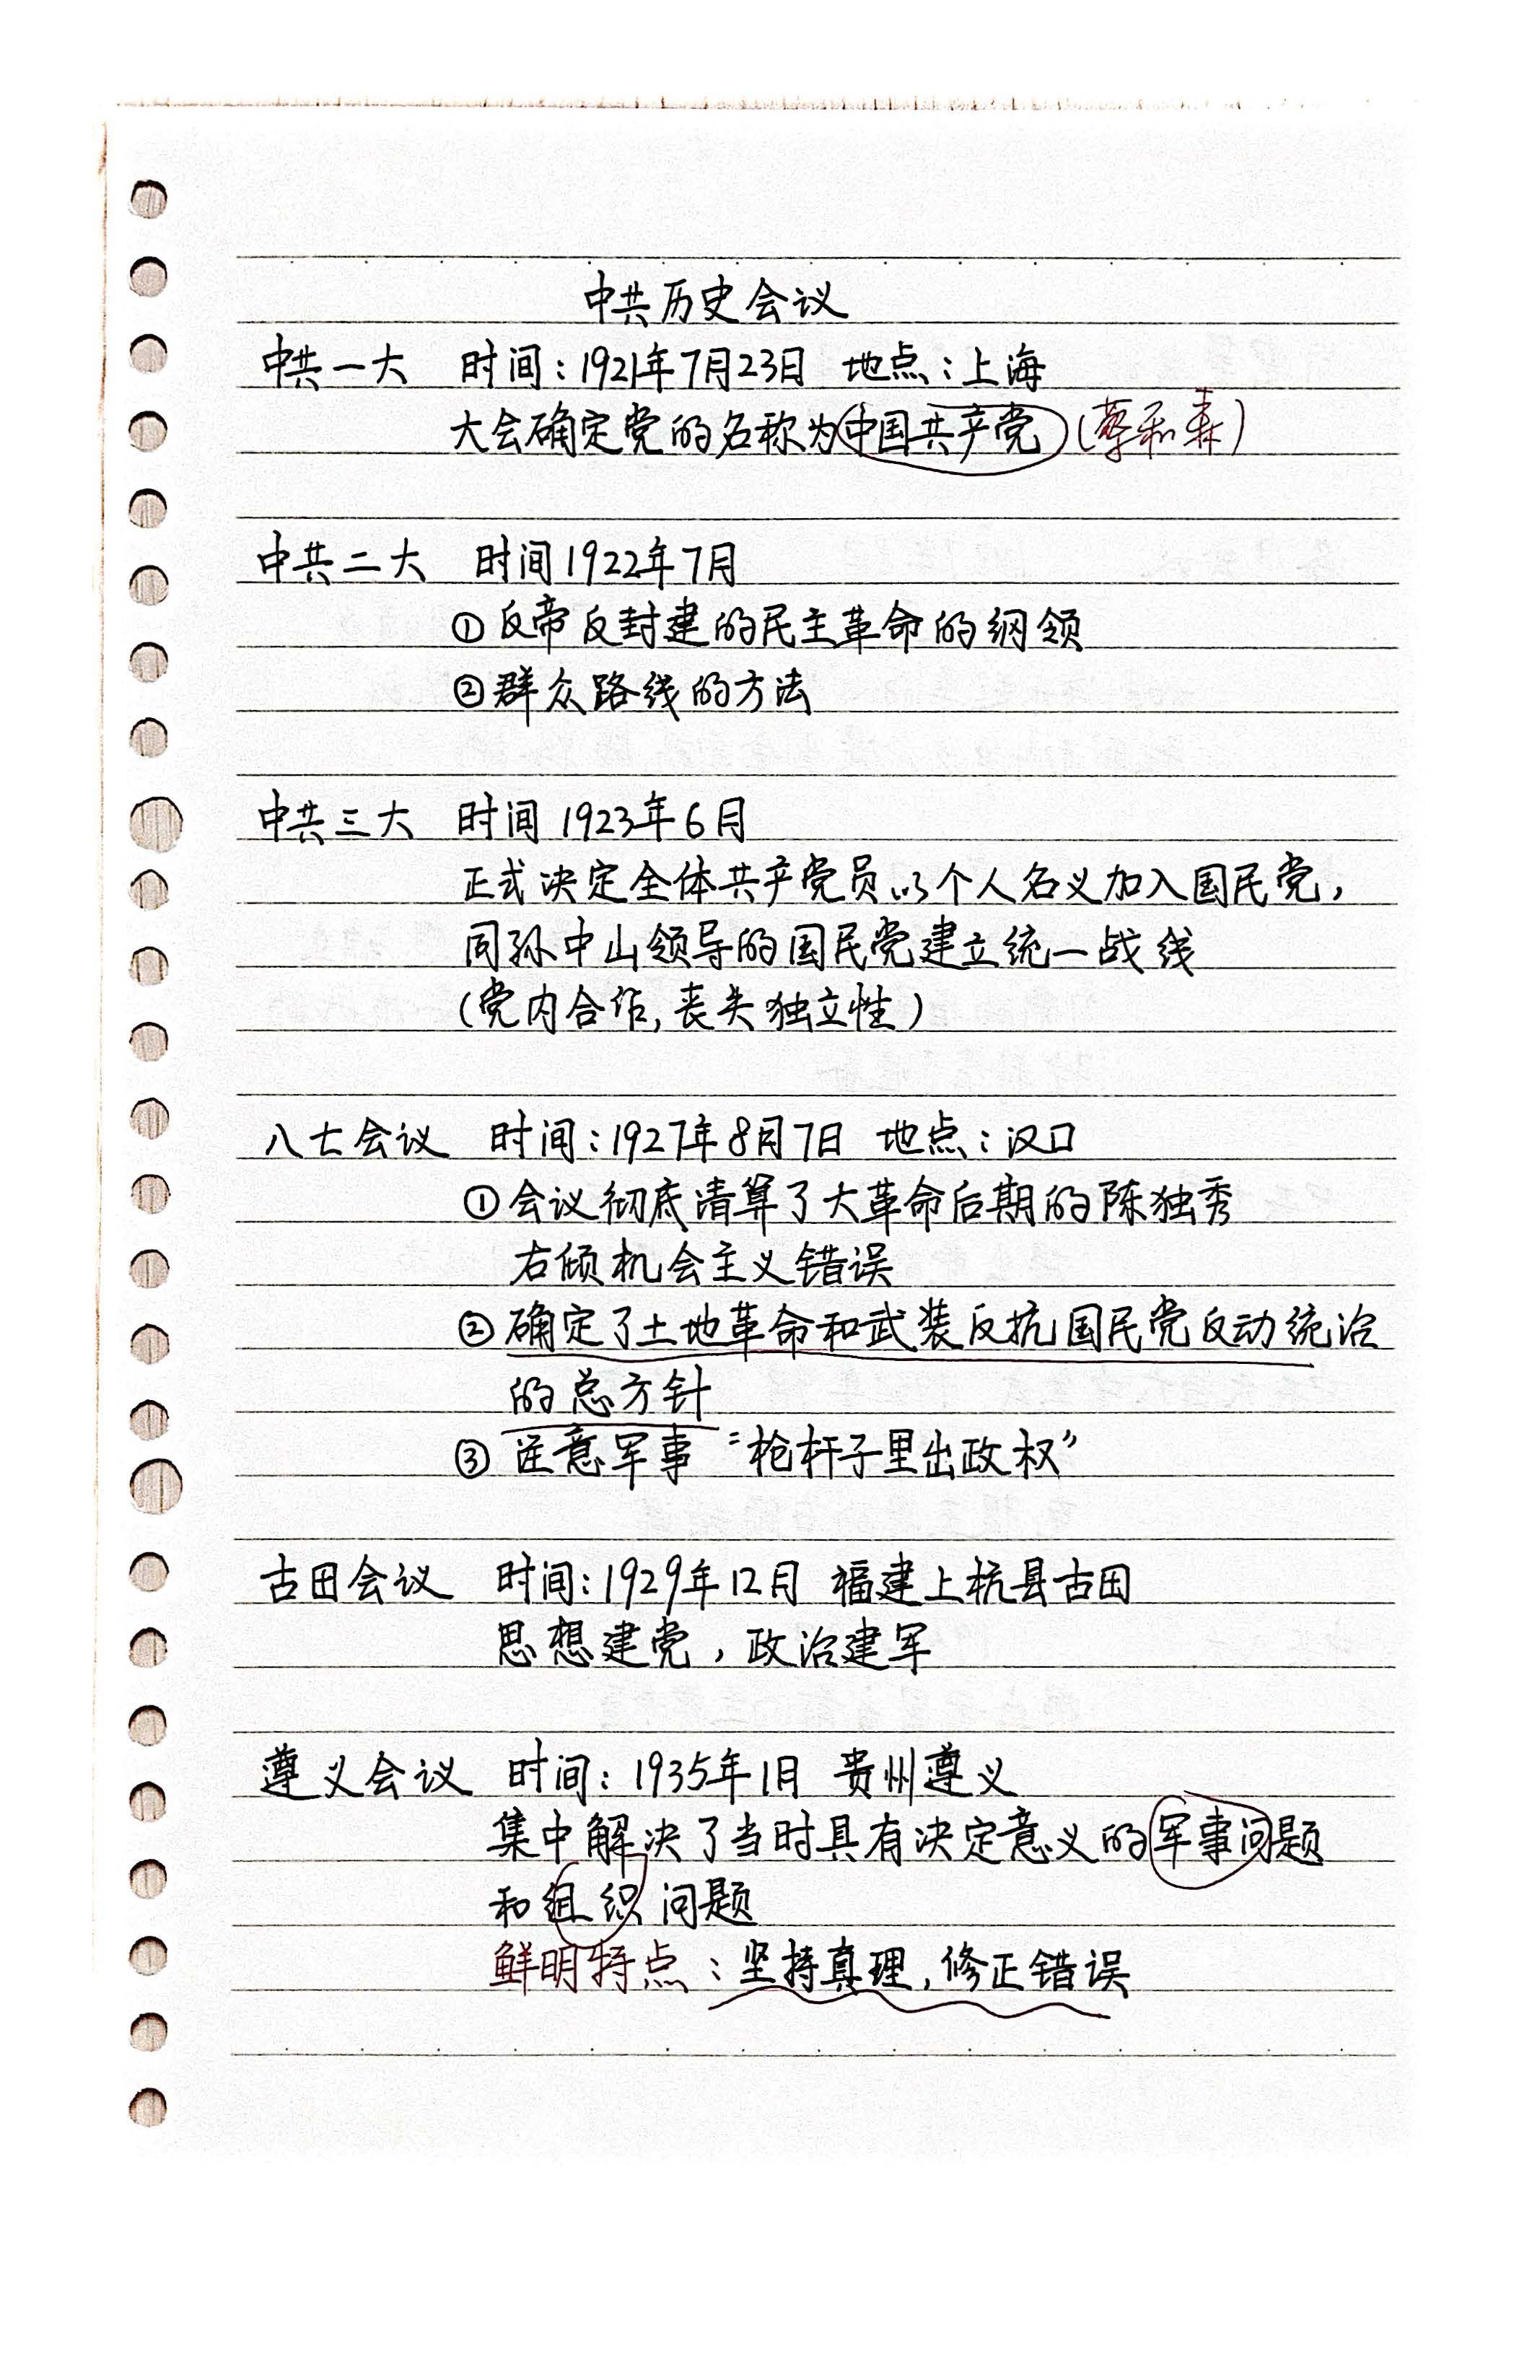 中共历史会议
中共一大 时间：1921年7月23日 地点：上海
大会确定党的名称为中国共产党（蔡和森）
中共二大 时间1922年7月
①反帝反封建的民主革命的纲领
②群众路线的方法
中共三大 时间1923年6月
正式决定全体共产党员以个人名义加入国民党，
同孙中山领导的国民党建立统一战线
（党内合作，丧失独立性）
八七会议 时间：1927年8月7日 地点：汉口
①会议彻底清算了大革命后期的陈独秀
右倾机会主义错误
②确定了土地革命和武装反抗国民党反动统治
的总方针
③注意军事“枪杆子里出政权”
古田会议 时间：1929年12月 福建上杭县古田
思想建党，政治建军
遵义会议 时间：1935年1月 贵州遵义
集中解决了当时具有决定意义的军事问题
和组织问题
鲜明特点：坚持真理，修正错误